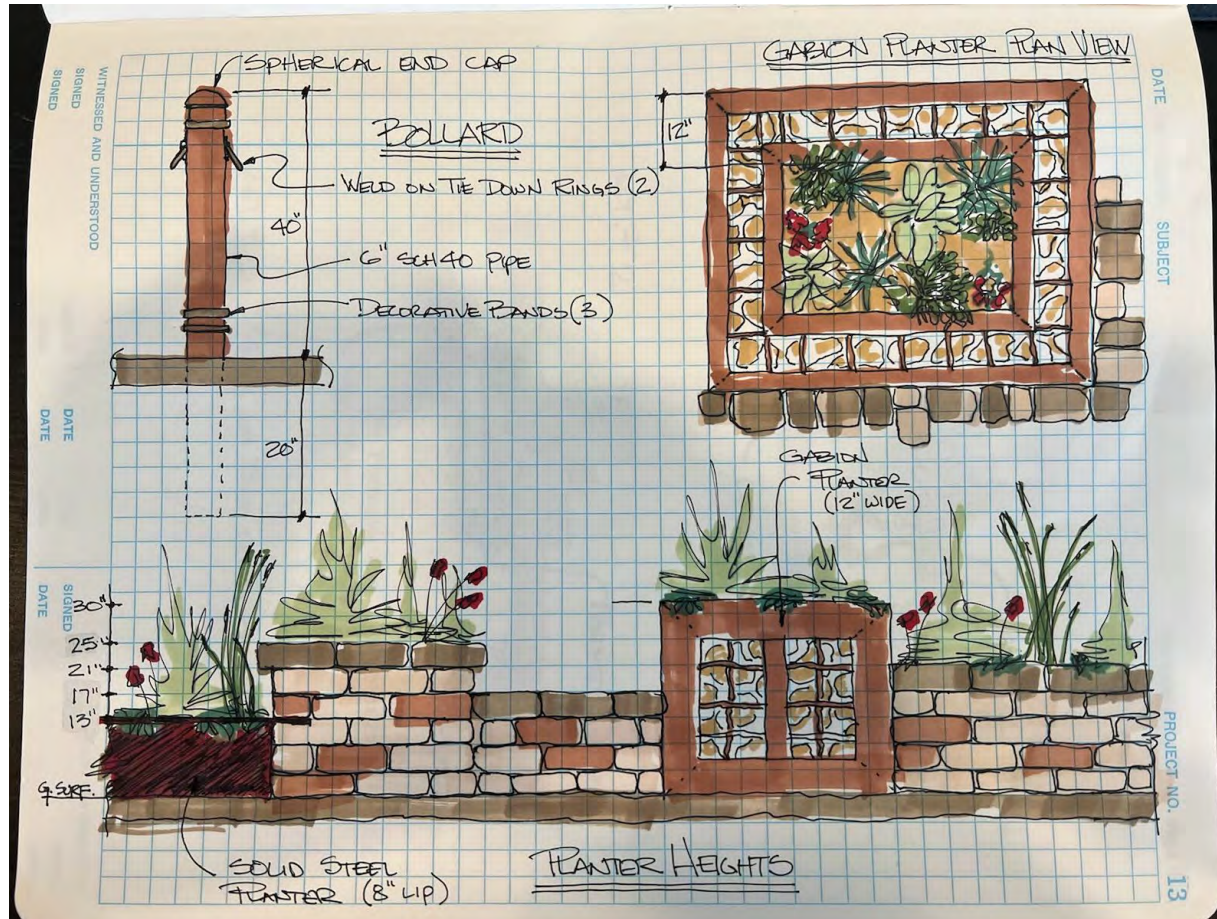 SPHERICAL END CAP
BOLLARD
WELD ON TIE DOWN RINGS (2)
40"
6" SCH 40 PIPE
DECORATIVE BANDS (3)
20"
GABION PLANTER PLAN VIEW
12"
GABION
PLANTER
(12" WIDE)
30"
25"
21"
17"
13"
G. SURF.
SOLID STEEL
PLANTER (8" LIP)
PLANTER HEIGHTS
WITNESSED AND UNDERSTOOD
SIGNED
SIGNED
DATE
DATE
SIGNED
DATE
DATE
SUBJECT
PROJECT NO.
13